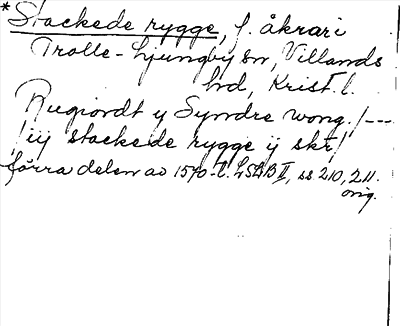 *Stackede rygge, f. åkrar i
Trolle-Ljungby sn, Villands
hd, Krist. l.
Rugiordt y Syndre wong. /---
/iij stackede rygge ij skr/
förra delen av 1570-t. LSAB II, ss 210, 211.
orig.